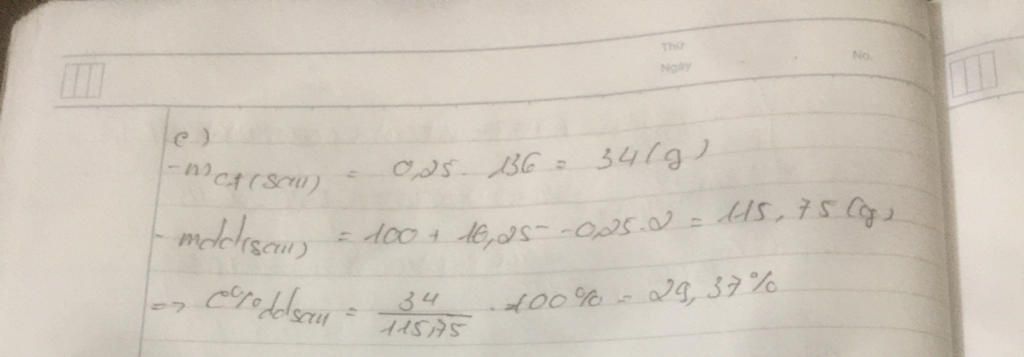 Thứ
Ngày
No.
c)
- mct(sau) = 0,25 . 136 = 34 (g)
- mdd(sau) = 100 + 16,25 - 0,25.2 = 115,75 (g)
=> C% ddsau = 34/115,75 . 100% = 29,37%